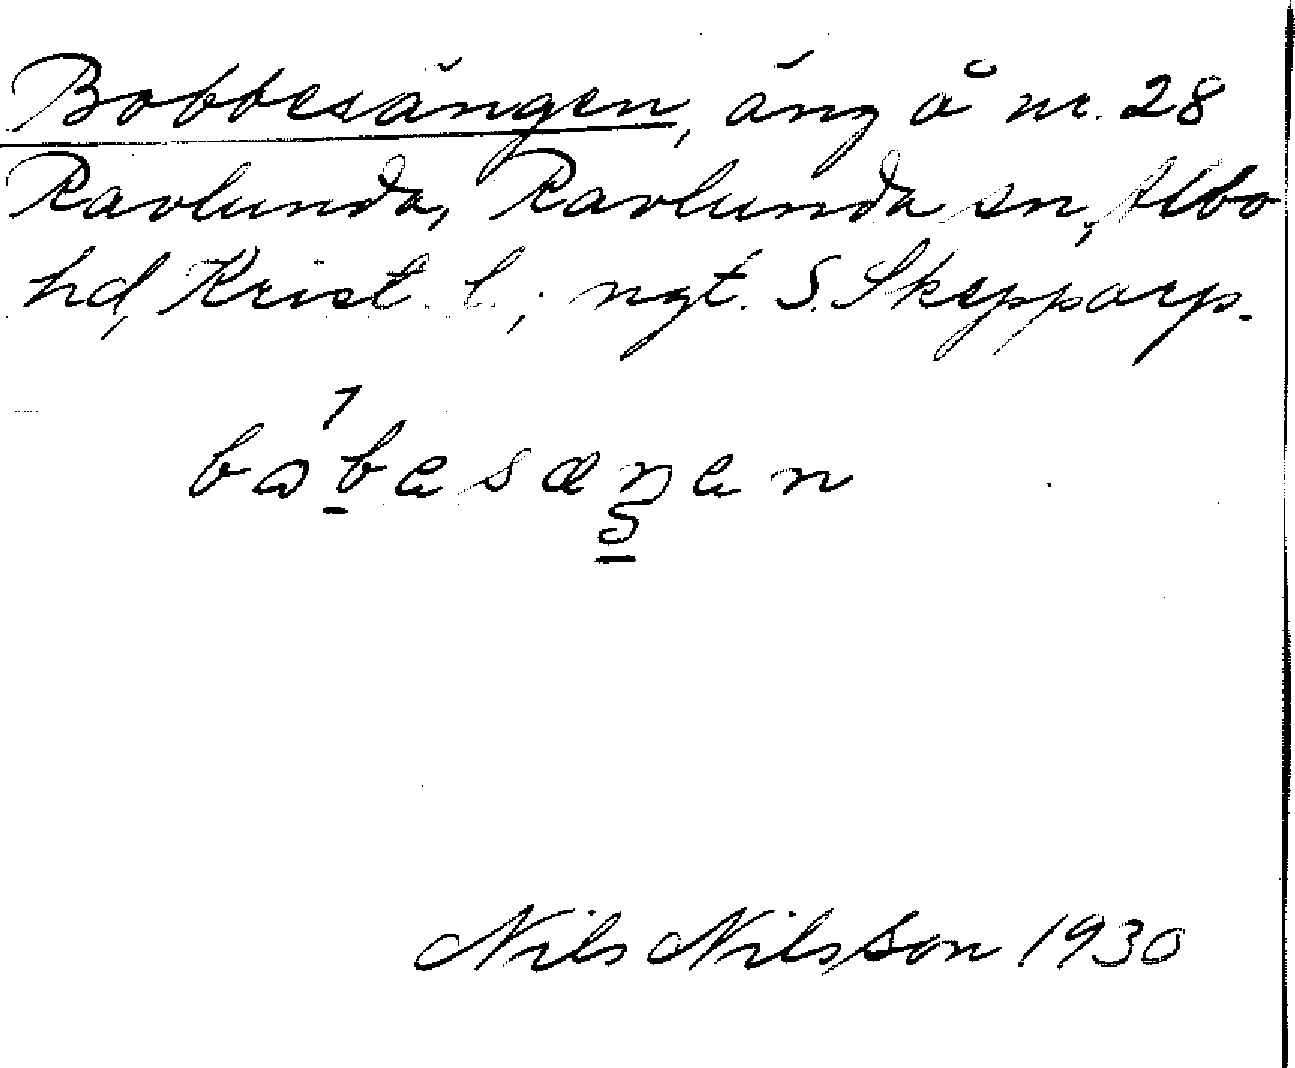 Bobbesängen, äng å nr. 28
Ravlunda, Ravlunda sn, Albo
hd, Krist. l.; ngt. S. Skepparp.
Nils Nilsson 1930